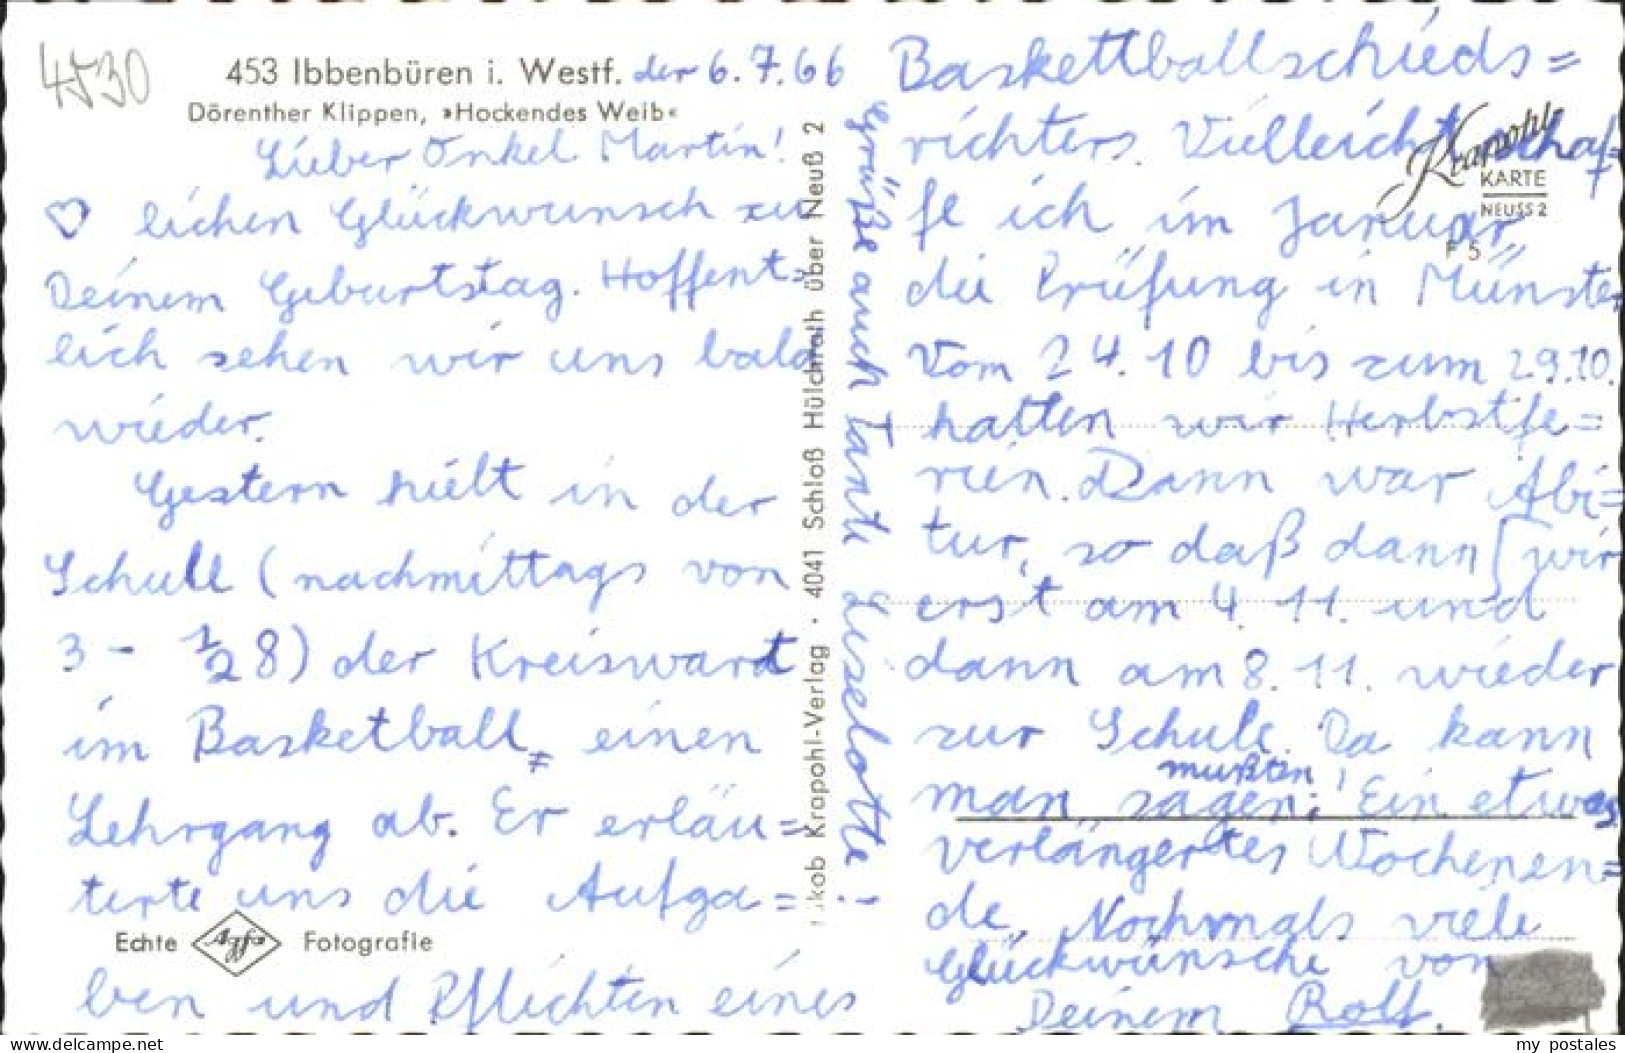 4530
453 Ibbenbüren i. Westf. der 6.7.66
Dörenther Klippen, »Hockendes Weib«
Lieber Onkel Martin!
♡lichen Glückwunsch zu
Deinem Geburtstag. Hoffent=
lich sehen wir uns bald
wieder.
Gestern hielt in der
Schule (nachmittags von
3 - ½8) der Kreiswart
im Basketball = einen
Lehrgang ab. Er erläu=
terte uns die Aufga=
Echte Agfa Fotografie
ben und Pflichten eines
Jakob Krapohl-Verlag · 4041 Schloß Hülchrath über Neuß 2
Baskettballschieds=
richters. Vielleicht schaf=
fe ich im Januar
die Prüfung in Münster
Vom 24.10 bis zum 29.10.
hatten wir Herbstfe=
rien. Dann war Abi=
tur, so daß dann [wir
erst am 4. 11. und
dann am 8. 11. wieder
zur Schule mußten! Da kann
man sagen: Ein etwas
verlängertes Wochenen=
de. Nochmals viele
Glückwünsche von
Deinem Rolf.
Grüße auch Tante Liselotte!
Krapohl
KARTE
NEUSS 2
F 5
echtes Echtheitszertifikat von
my postales